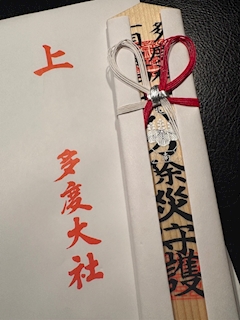 上
多度大社
多度
除災守護